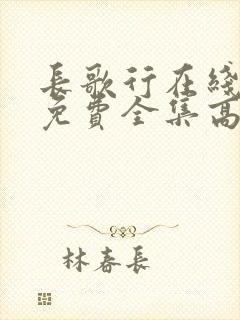 長歌行在綫
免費全集高
林春長